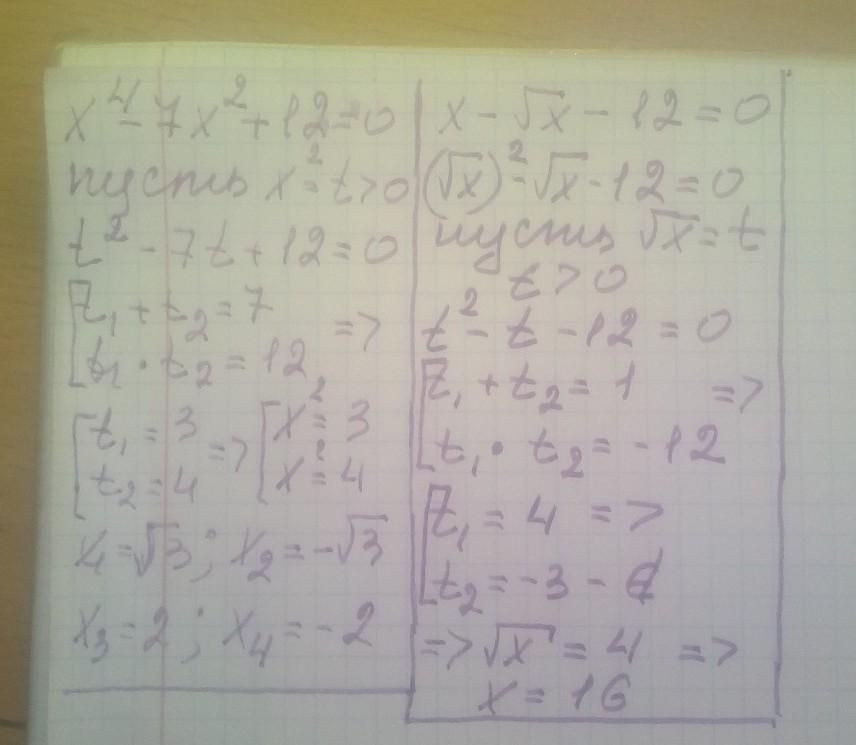 x⁴ - 7x² + 12 = 0
пусть x² = t > 0
t² - 7t + 12 = 0
[t₁ + t₂ = 7
[t₁ · t₂ = 12 =>
[t₁ = 3
[t₂ = 4 => [x² = 3
[x² = 4
x₁ = √3; x₂ = -√3
x₃ = 2; x₄ = -2
x - √x - 12 = 0
(√x)² - √x - 12 = 0
пусть √x = t
t > 0
t² - t - 12 = 0
[t₁ + t₂ = 1 =>
[t₁ · t₂ = -12
[t₁ = 4 =>
[t₂ = -3 -
=> √x = 4 =>
x = 16